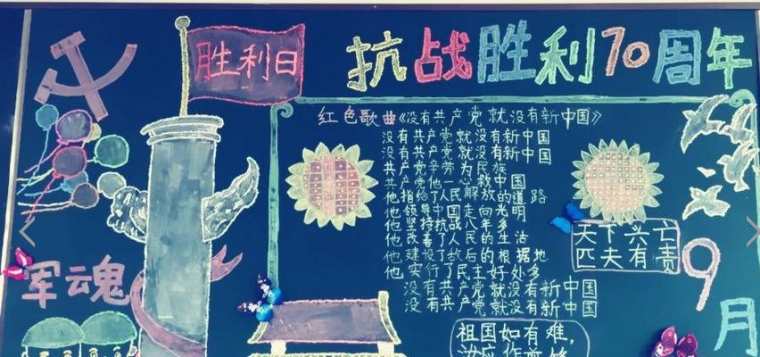 胜利日
抗战胜利70周年
红色歌曲《没有共产党就没有新中国》
没有共产党就没有新中国
没有共产党就没有新中国
共产党辛劳为民族
共产党他一心救中国
他指给了人民解放的道路
他领导中国走向光明
他坚持抗战八年多
他改善了人民的生活
他建设了敌后的根据地
他实行了民主好处多
没有共产党就没有新中国
没有共产党就没有新中国
天下兴亡
匹夫有责
9月
军魂
祖国如有难,